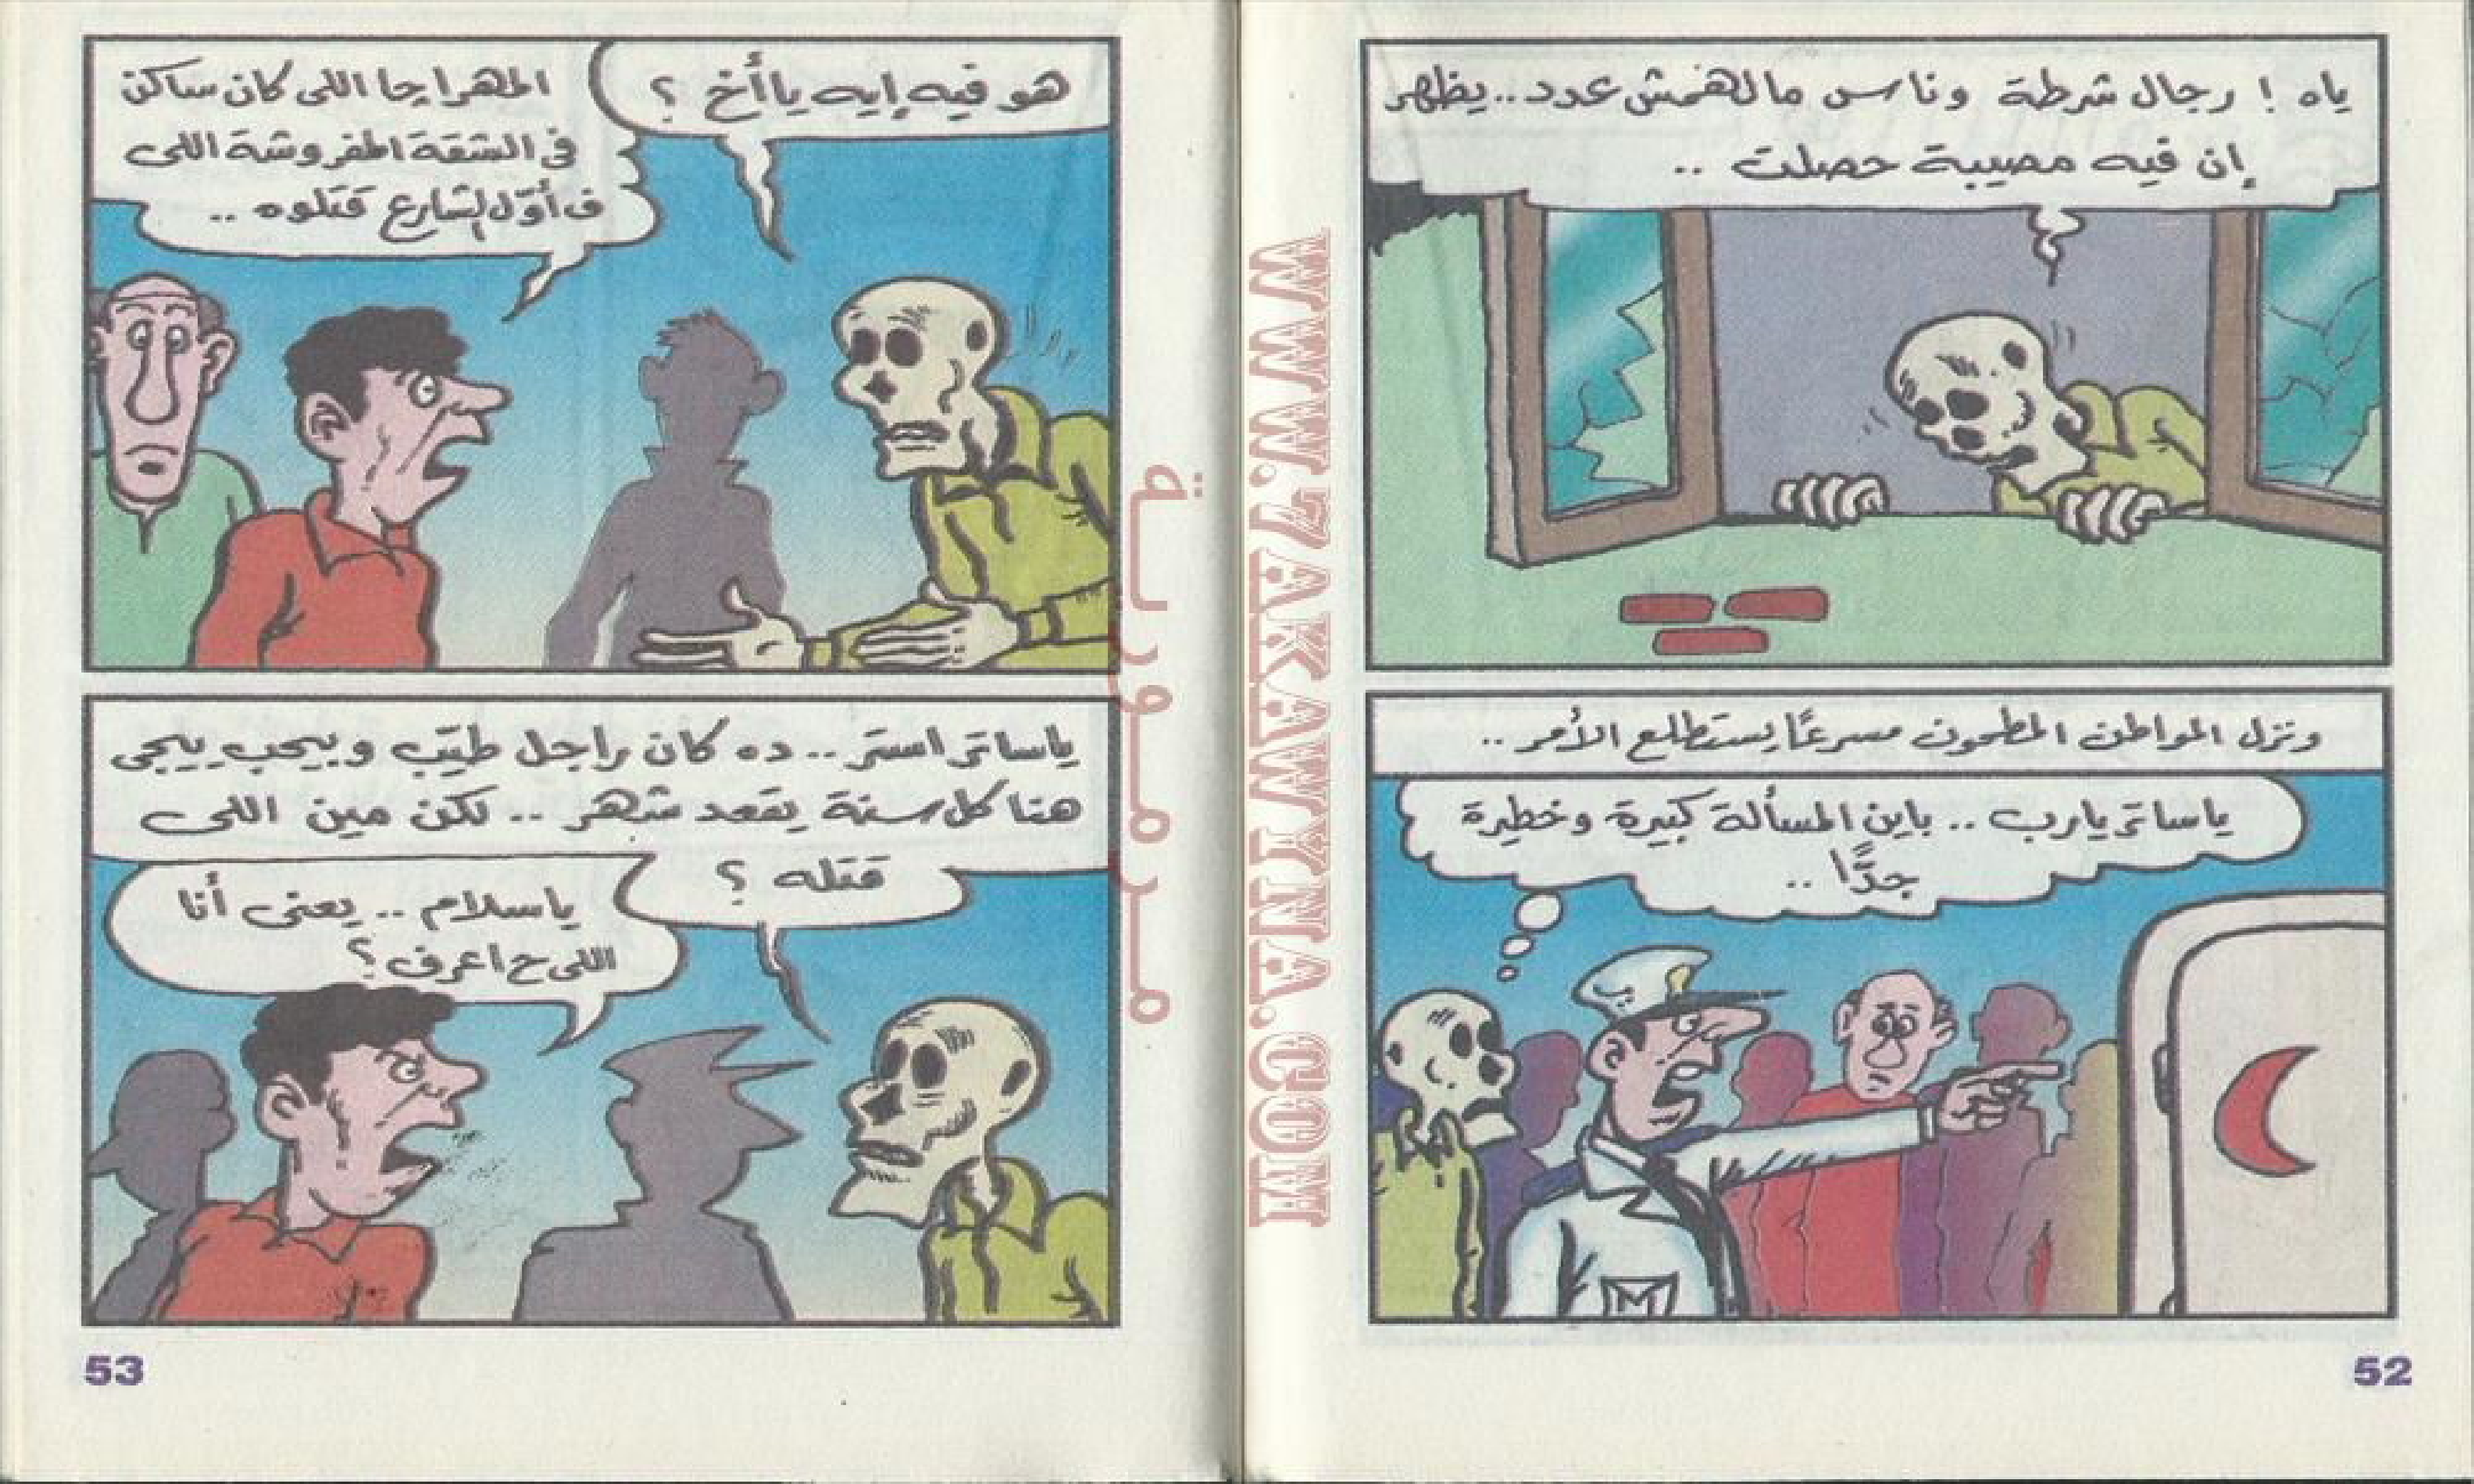 ياه ! رجال شرطة وناس مالهمش عدد.. يظهر
إن فيه مصيبة حصلت ..
ونزل المواطن المطحون مسرعًا يستطلع الأمر ..
ياساتر يارب .. باين المسألة كبيرة وخطيرة
جدًّا ..
52
هو فيه إيه ياأخ ؟
المهراجا اللى كان ساكن
فى الشقة المفروشة اللى
ف أوّل الشارع قتلوه ..
ياساتر استر .. ده كان راجل طيّب وبيحب ييجى
هنا كل سنة يقعد شهر .. لكن مين اللى
قتله ؟
ياسلام .. يعنى أنا
اللى ح اعرف ؟
53
WWW.7AKAWYNA.COM
مرمورية
M